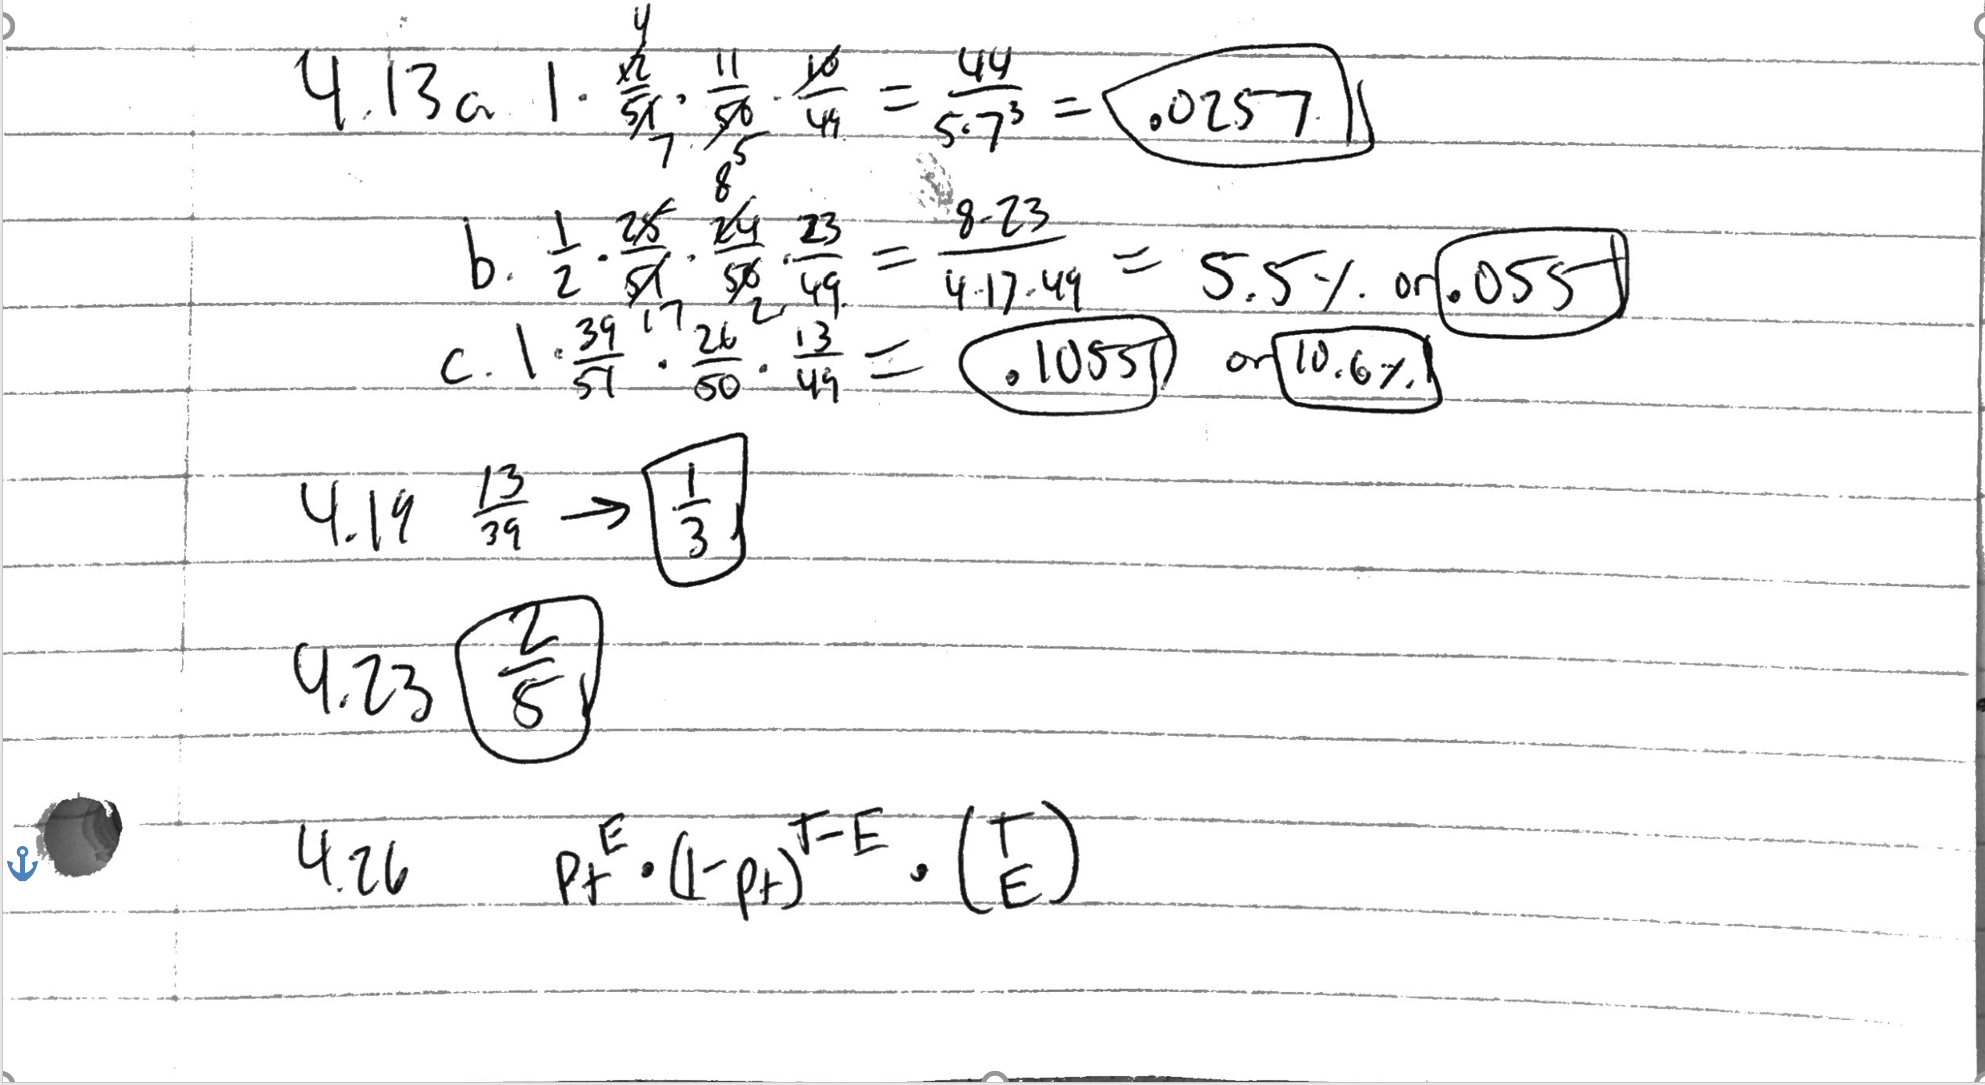 4.13 a 1 · 12/51 · 11/50 · 10/49 = 44/5·7³ = .0257
4 7 5
b. 1/2 · 25/51 · 24/50 · 23/49 = 8·23/4·17·49 = 5.5% or .055
8 17 2
c. 1 · 39/51 · 26/50 · 13/49 = .1055 or 10.6%
4.19 13/39 → 1/3
4.23 2/5
4.26 pt^E · (1-pt)^(T-E) · (T E)